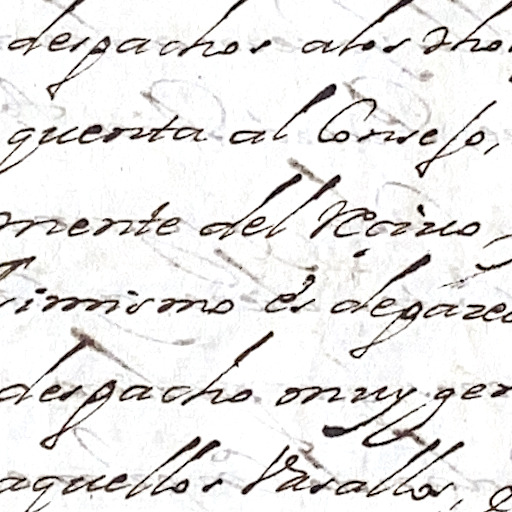 despachos alos dho
quenta al Consejo,
mente del Recivo
simismo és deparec
despacho muy gen
aquellos Vasallos,